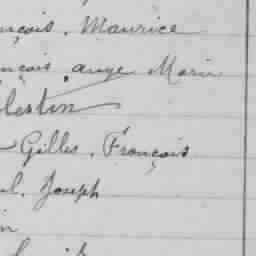 nçois. Maurice
nçois ange Marie
lestin
Gilles. François
l. Joseph
in